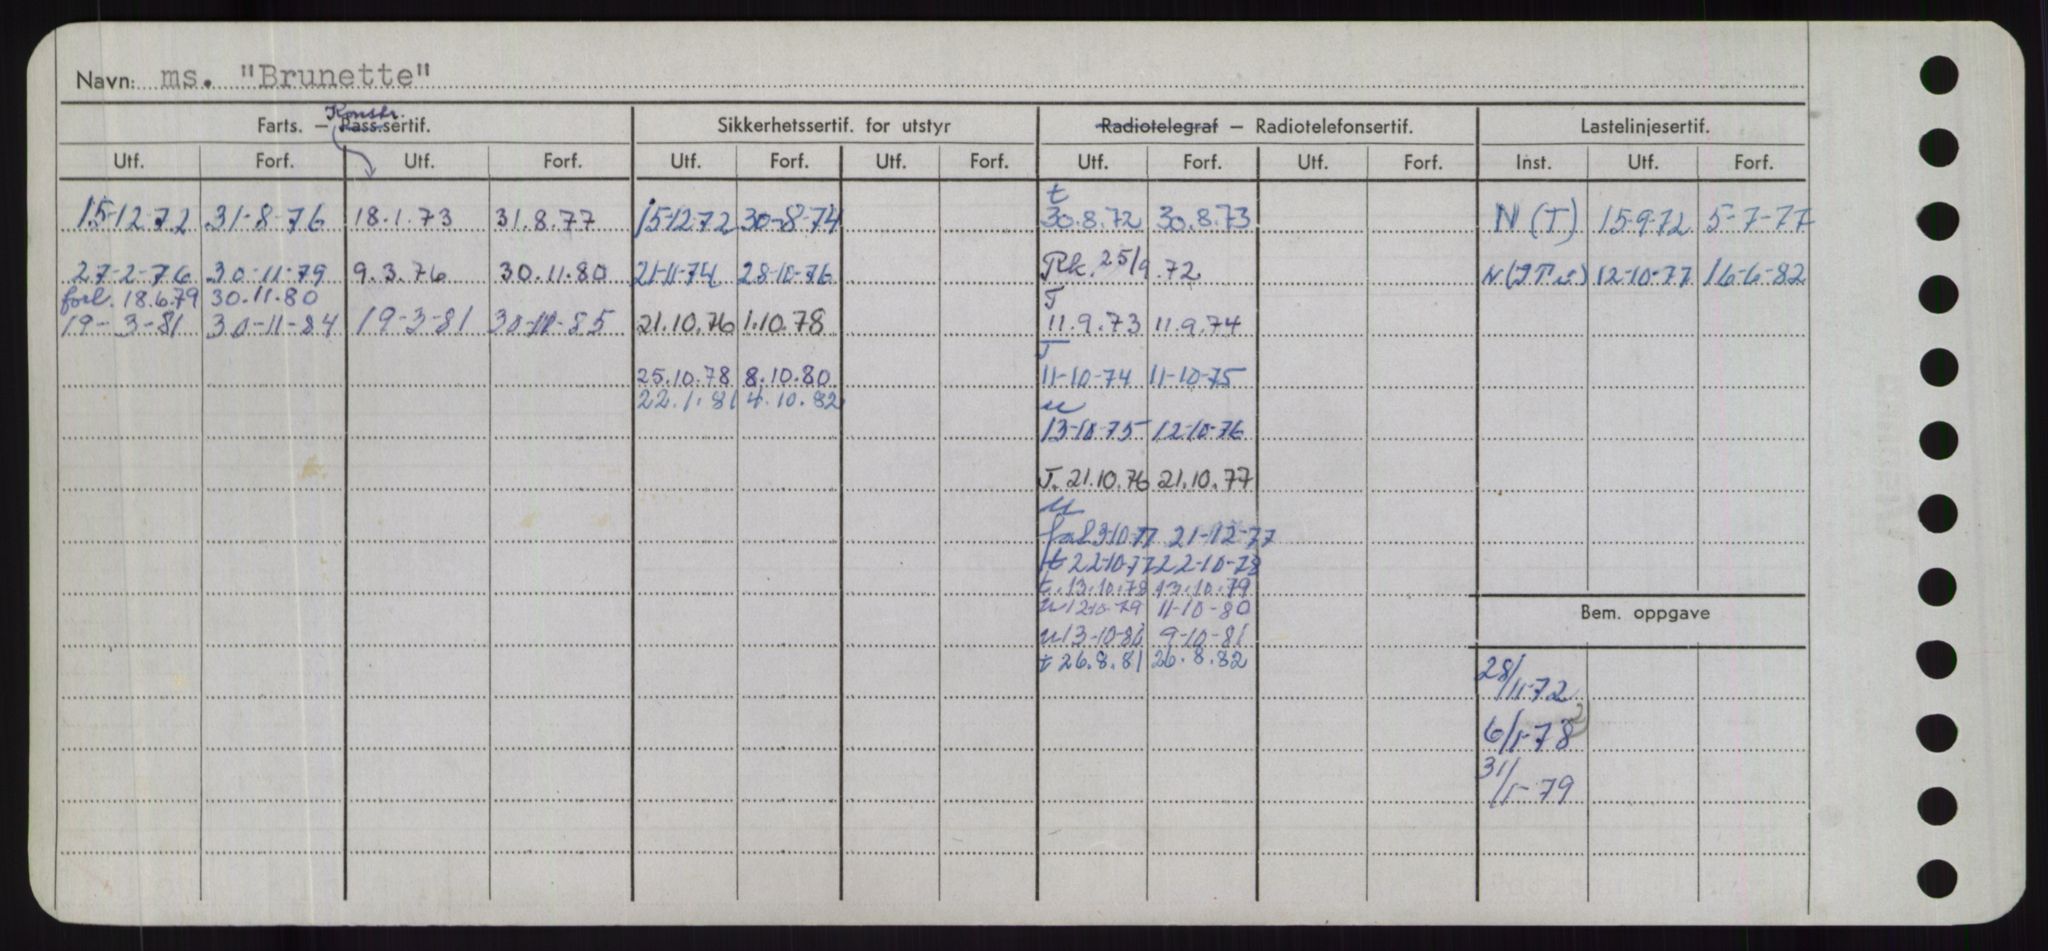 Navn: ms. "Brunette"
Konstr.
Farts. – Pass.sertif. Sikkerhetssertif. for utstyr Radiotelegraf – Radiotelefonsertif. Lastelinjesertif.
Utf. Forf. Utf. Forf. Utf. Forf. Utf. Forf. Utf. Forf. Utf. Forf. Inst. Utf. Forf.
t
15-12-72 31-8-76 18.1.73 31.8.77 15-12-72 30-8-74 30.8.72 30.8.73 N (T) 15-9-72 5-7-77
27-2-76 30-11-79 9.3.76 30.11.80 21-11-74 28-10-76 Rk. 25/9.72 12-10-77 16-6-82
forl. 18.6.79 30.11.80
T
19-3-81 30-11-84 19-3-81 21.10.76 1.10.78 11.9.73 11.9.74
T
25.10.78 8.10.80 11-10-74 11-10-75
22.1.81 4.10.82
u
13-10-75 12-10-76
T. 21.10.76 21.10.77
u
21-12-77
t 22-10-77 22-10-78
t. 13.10.78 13.10.79
u 12-10-79 11-10-80
Bem. oppgave
u 13-10-80 9-10-81
t 26.8.81 26.8.82
28/11-72
6/1-78
31/1-79